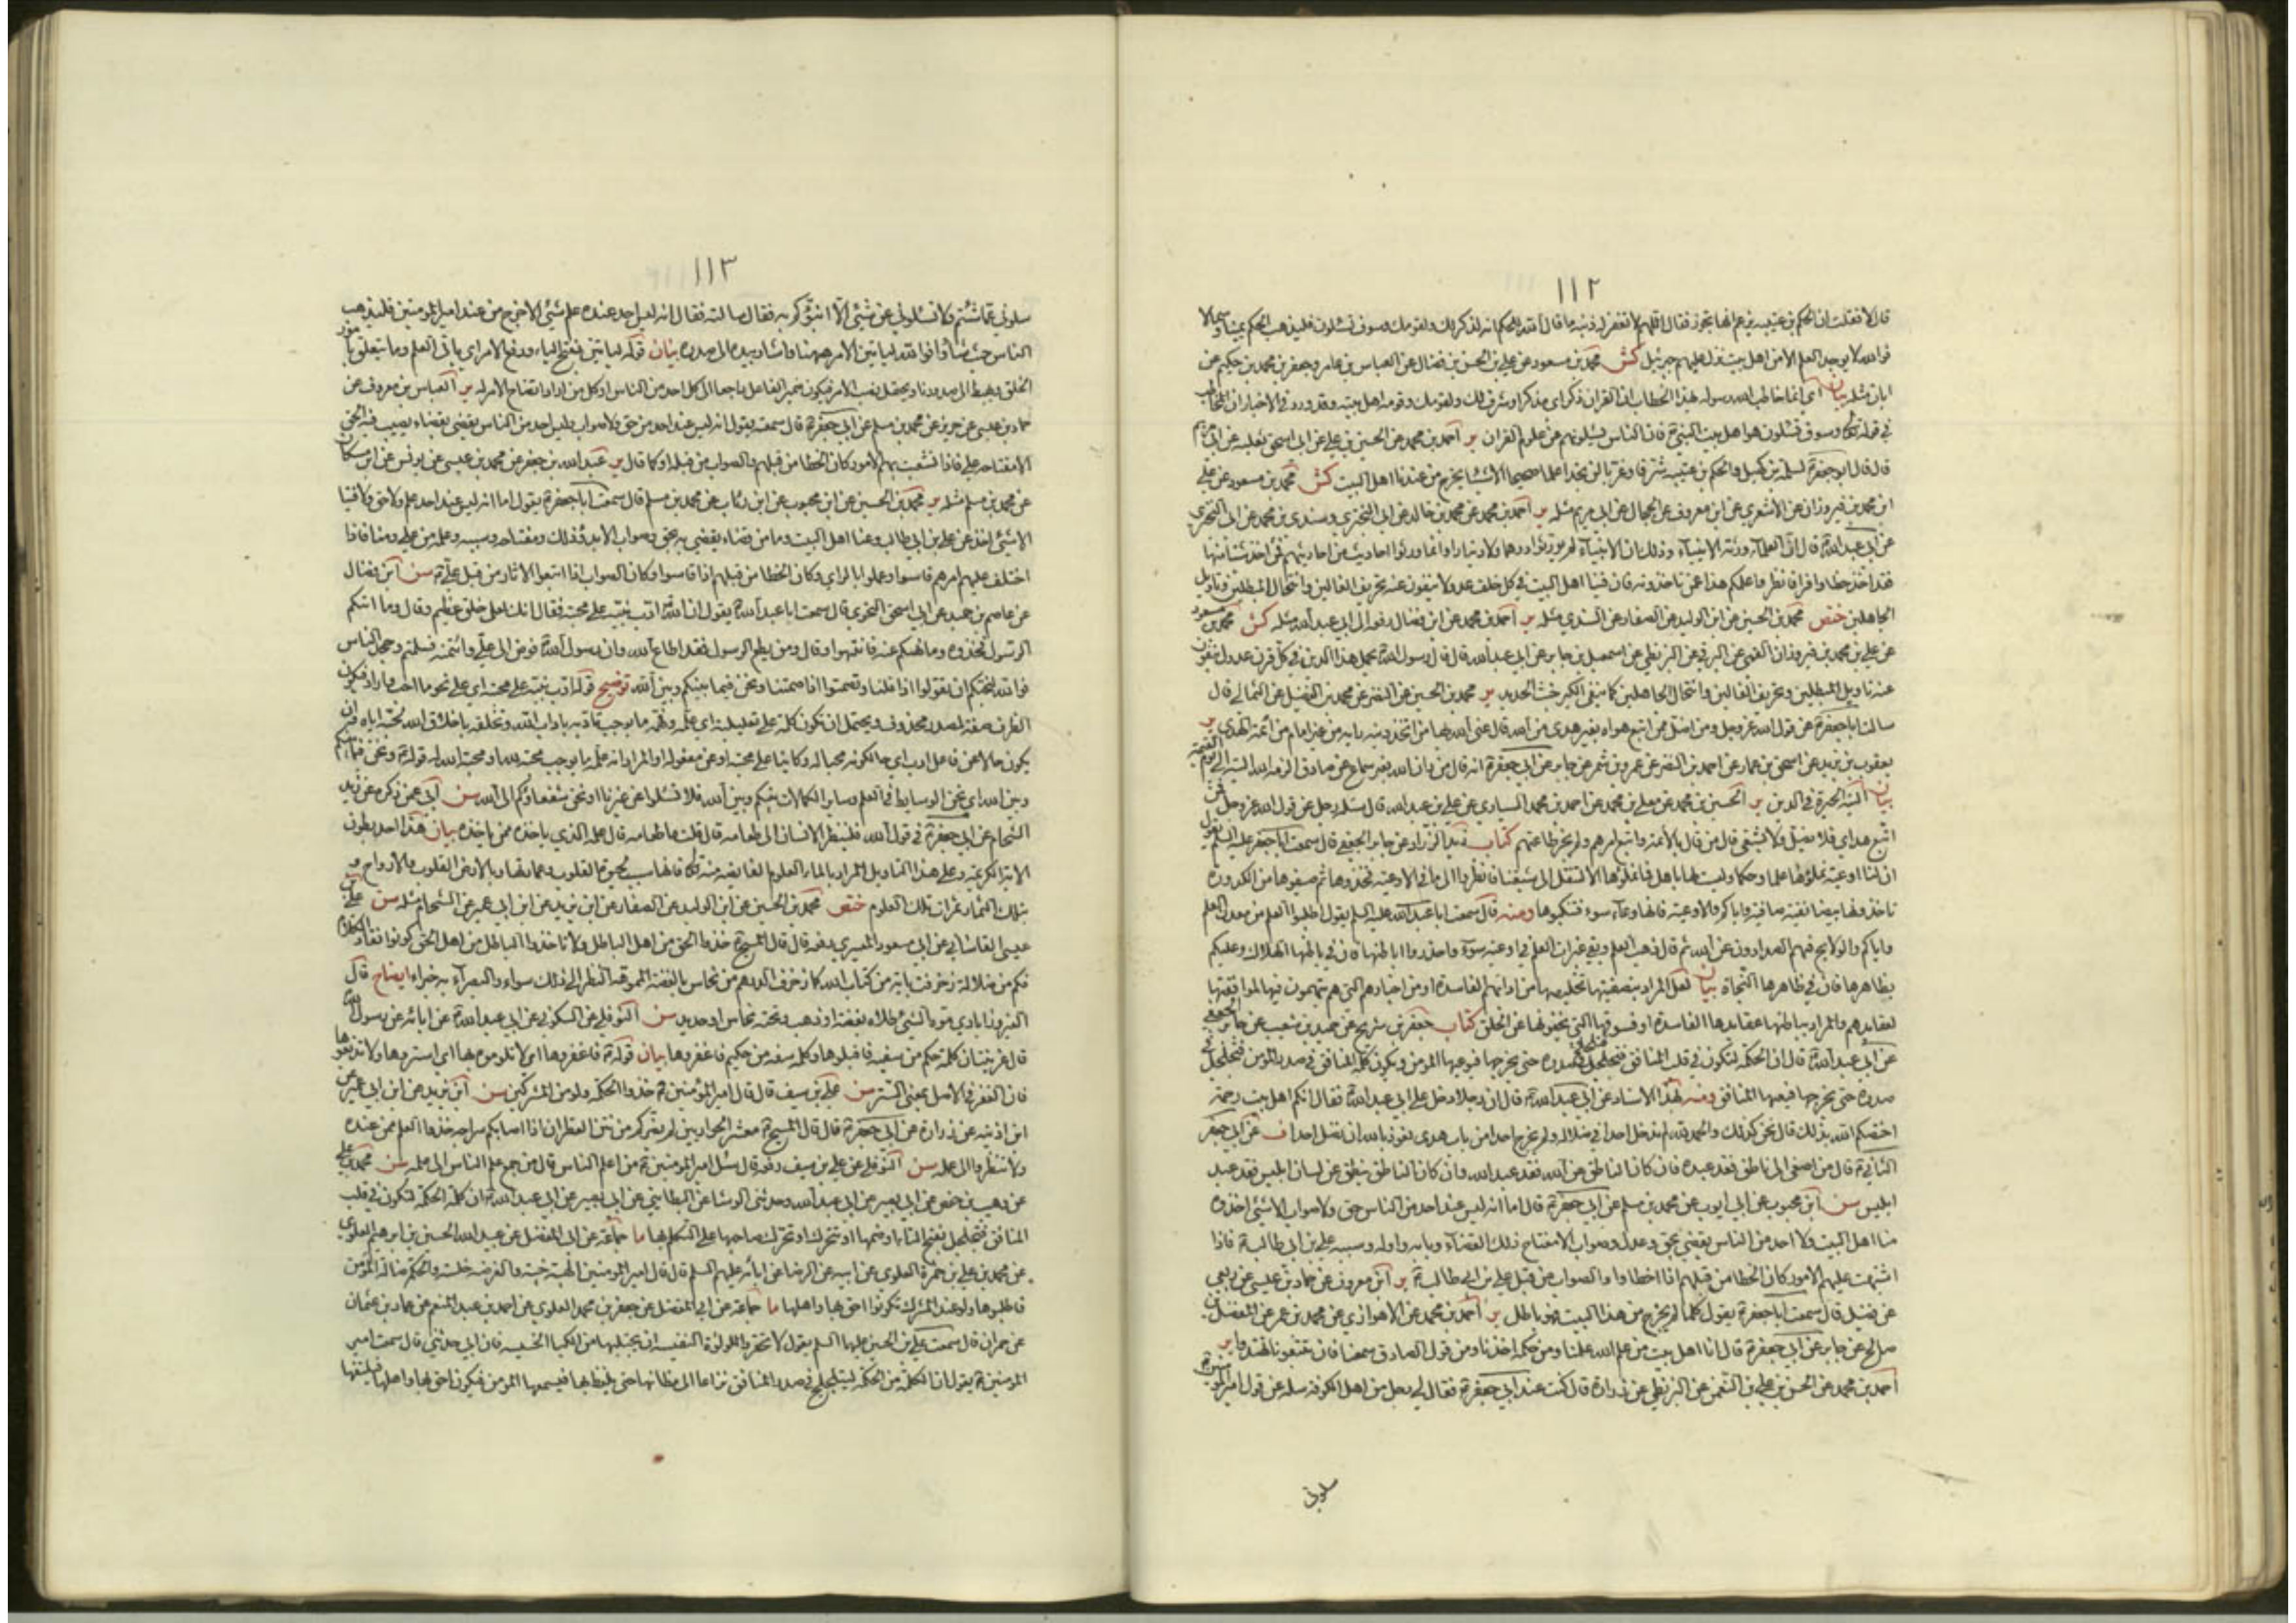 ١١٢
قال لا فقلت ان الحكم بن عتيبة يزعم انها تجوز فقال اللهم لا تغفر له ذنبه ما قال الله للحكم انه لذكر لك ولقومك وسوف تسئلون فليذهب الحكم يمينا وشمالا
فوالله لا يوجد العلم الا من اهل بيت نزل عليهم جبرئيل كش محمد بن مسعود عن علي بن الحسن بن فضال عن العباس بن عامر وجعفر بن محمد بن حكيم عن
ابان مثله بيان اي انما خاطب الله رسوله بهذا الخطاب ان القران ذكر اي مذكر او شرف لك ولقومك وقومه اهل بيته وقد ورد في الاخبار ان المخاطب
في قوله تعالى وسوف تسئلون هو اهل بيت النبي فان الناس يسئلونهم عن علوم القران ير احمد بن محمد عن الحسين بن علي عن ابي اسحق ثعلبة عن ابي مريم
قال قال ابو جعفر لسلمة بن كهيل والحكم بن عتيبة شرقا وغربا لن تجدا علما صحيحا الا شيئا يخرج من عندنا اهل البيت كش محمد بن مسعود عن علي
ابن محمد بن فيروزان عن الاشعري عن ابن معروف عن الحجال عن ابي مريم مثله ير احمد بن محمد عن محمد بن خالد عن ابي البختري وسندي بن محمد عن ابي البختري
عن ابي عبد الله قال ان العلماء ورثة الانبياء وذلك ان الانبياء لم يورثوا درهما ولا دينارا وانما ورثوا احاديث من احاديثهم فمن اخذ شيئا منها
فقد اخذ حظا وافرا فانظروا علمكم هذا عمن تاخذونه فان فينا اهل البيت في كل خلف عدولا ينفون عنه تحريف الغالين وانتحال المبطلين وتاويل
الجاهلين ختص محمد بن الحسين عن ابن الوليد عن الصفار عن السندي مثله ير احمد بن محمد عن ابن فضال رفعه الى ابي عبد الله مثله كش محمد بن مسعود
عن علي بن محمد بن فيروزان القمي عن البرقي عن البزنطي عن اسمعيل بن جابر عن ابي عبد الله قال قال رسول الله يحمل هذا الدين في كل قرن عدول ينفون
عنه تاويل المبطلين وتحريف الغالين وانتحال الجاهلين كما ينفي الكير خبث الحديد ير محمد بن الحسين عن النضر عن محمد بن الفضيل عن الثمالي قال
سالت ابا جعفر عن قول الله عز وجل ومن اضل ممن اتبع هواه بغير هدى من الله قال عنى الله بها من اتخذ دينه رايه من غير امام من ائمة الهدى ير
يعقوب بن يزيد عن اسحق بن عمار عن احمد بن النضر عن عمرو بن شمر عن جابر عن ابي جعفر انه قال من دان الله بغير سماع عن صادق الزمه الله التيه الى يوم القيمة
بيان التيه الحيرة في الدين ير الحسين بن محمد عن معلى بن محمد عن احمد بن محمد السياري عن علي بن عبد الله قال سئله رجل عن قول الله عز وجل فمن
اتبع هداي فلا يضل ولا يشقى قال من قال بالائمة واتبع امرهم ولم يجز طاعتهم كتاب زيد الزراد عن جابر الجعفي قال سمعت ابا جعفر عليه السلم يقول
ان لنا اوعية نملؤها علما وحكما وليست لها باهل فما نملؤها الا لتنقل الى شيعتنا فانظروا الى ما في الاوعية فخذوها ثم صفوها من الكدورة
تاخذونها بيضاء نقية صافية واياكم والاوعية فانها وعاء سوء فتنكبوها ومنه قال سمعت ابا عبد الله عليه السلم يقول اطلبوا العلم من معدن العلم
واياكم والولايج فهم الصدادون عن الله ثم قال ذهب العلم وبقي غبرات العلم في اوعية سوء فاحذروا باطنها فان في باطنها الهلاك وعليكم
بظاهرها فان في ظاهرها النجاة بيان لعل المراد بتصفيتها تخليصها من ارائهم الفاسدة او من اخبارهم التي هم متهمون فيها لموافقتها
لعقايدهم والمراد بباطنها عقايدها الفاسدة او فسوقها التي يخفونها عن الخلق كتاب جعفر بن شريح عن حميد بن شعيب عن جابر الجعفي
عن ابي عبد الله قال ان الحكمة لتكون في قلب المنافق فتجلجل في صدره حتى يخرجها فيوعيها المؤمن وتكون كلمة المنافق في صدر المؤمن فتجلجل في
صدره حتى يخرجها فيعيها المنافق ومنه بهذا الاسناد عن ابي عبد الله قال ان رجلا دخل على ابي عبد الله فقال انكم اهل بيت رحمة
اختصكم الله بذلك قال نحن كذلك والحمد لله لم ندخل احدا في ضلالة ولم نخرج احدا من باب هدى نعوذ بالله ان نضل احدا ف عن ابي جعفر
الثاني قال من اصغى الى ناطق فقد عبده فان كان الناطق عن الله فقد عبد الله وان كان الناطق ينطق عن لسان ابليس فقد عبد
ابليس سن ابن محبوب عن ابي ايوب عن محمد بن مسلم عن ابي جعفر قال اما انه ليس عند احد من الناس حق ولا صواب الا شيء اخذوه
منا اهل البيت ولا احد من الناس يقضي بحق وعدل وصواب الا مفتاح ذلك القضاء وبابه واوله وسببه علي بن ابي طالب فاذا
اشتبهت عليهم الامور كان الخطا من قبلهم اذا اخطاوا والصواب من قبل علي بن ابي طالب ير ابن معروف عن حماد بن عيسى عن ربعي
عن فضيل قال سمعت ابا جعفر يقول كلما لم يخرج من هذا البيت فهو باطل ير احمد بن محمد عن الاهوازي عن محمد بن عمر عن المفضل بن
صالح عن جابر عن ابي جعفر قال انا اهل بيت من علم الله علمنا ومن حكمه اخذنا ومن قول الصادق سمعنا فان تتبعونا تهتدوا ير
احمد بن محمد عن الحسن بن علي بن النعمن عن البزنطي عن زرارة قال كنت عند ابي جعفر فقال لي رجل من اهل الكوفة سله عن قول امير المؤمنين
سلوني
١١٣
سلوني عما شئتم ولا تسئلوني عن شيء الا انبؤكم به فقال سالته فقال انه ليس احد عنده علم شيء الا خرج من عند امير المؤمنين فليذهب
الناس حيث شاؤا فوالله لياتين الامر ههنا واشار بيده الى صدره بيان قوله لياتين بفتح الياء ورفع الامر اي ياتي العلم وما يتعلق بامور
الخلق ويهبط الى صدورنا ويحتمل نصب الامر فيكون ضمير الفاعل راجعا الى كل احد من الناس او كل من اراد اتضاح الامر له ير العباس بن معروف عن
حماد بن عيسى عن حريز عن محمد بن مسلم عن ابي جعفر قال سمعته يقول انه ليس عند احد من حق ولا صواب وليس احد من الناس يقضي بقضاء يصيب فيه الحق
الا مفتاحه علي فاذا تشعبت بهم الامور كان الخطا من قبلهم والصواب من قبله او كما قال ير عبد الله بن جعفر عن محمد بن عيسى عن يونس عن ابن مسكان
عن محمد بن مسلم مثله ير محمد بن الحسين عن ابن محبوب عن ابن رئاب عن محمد بن مسلم قال سمعت ابا جعفر يقول اما انه ليس عند احد علم ولا حق ولا فتيا
الا شيء اخذ عن علي بن ابي طالب وعنا اهل البيت وما من قضاء يقضى به بحق وصواب الا بدؤ ذلك ومفتاحه وسببه وعلمه من علي ومنا فاذا
اختلف عليهم امرهم قاسوا وعملوا بالراي وكان الخطا من قبلهم اذا قاسوا وكان الصواب اذا اتبعوا الاثار من قبل علي سن ابن فضال
عن عاصم بن حميد عن ابي اسحق النحوي قال سمعت ابا عبد الله يقول ان الله ادب نبيه على محبته فقال انك لعلى خلق عظيم وقال وما اتيكم
الرسول فخذوه وما نهيكم عنه فانتهوا وقال ومن يطع الرسول فقد اطاع الله وان رسول الله فوض الى علي وائتمنه فسلمتم وجحد الناس
فوالله لنحبكم ان تقولوا اذا قلنا وتصمتوا اذا صمتنا ونحن فيما بينكم وبين الله توضيح قوله ادب نبيه على محبته اي على نحو ما احب واراد فيكون
الظرف صفة لمصدر محذوف ويحتمل ان تكون كلمة على تعليلية اي علمه وفهمه ما يوجب تادبه باداب الله وتخلقه باخلاق الله لحبه اياه وان
يكون حالا عن فاعل ادب اي حال كونه محبا له وكاينا على محبته او عن مفعوله او المراد انه علمه ما يوجب محبته لله او محبة الله له قوله ونحن فيما بينكم
وبين الله اي نحن الوسايط في العلم وساير الكمالات بينكم وبين الله فلا تسئلوا عن غيرنا او نحن شفعاؤكم الى الله سن ابي عمن ذكره عن زيد
الشحام عن ابي جعفر في قول الله فلينظر الانسان الى طعامه قال قلت ما طعامه قال علمه الذي ياخذه ممن ياخذه بيان هذا احد بطون
الاية الكريمة وعلى هذا التاويل المراد بالماء العلوم الفايضة منه تعالى فانها سبب لحيوة القلوب وعمارتها وبالارض القلوب والارواح و
بتلك الثمار ثمرات تلك العلوم ختص محمد بن الحسين عن ابن الوليد عن الصفار عن ابن يزيد عن ابن ابي عمير عن الشحام مثله سن علي بن
عيسى القاساني عن ابن مسعود الميسري رفعه قال قال المسيح خذوا الحق من اهل الباطل ولا تاخذوا الباطل من اهل الحق كونوا نقاد الكلام
فكم من ضلالة زخرفت باية من كتاب الله كما زخرف الدرهم من نحاس بالفضة المموهة النظر الى ذلك سواء والبصراء به خبراء ايضاح قال
الفيروزابادي موه الشيء طلاه بفضة او ذهب وتحته نحاس او حديد سن النوفلي عن السكوني عن ابي عبد الله عن ابائه عن رسول الله
قال غريبتان كلمة حكم من سفيه فاقبلوها وكلمة سفه من حكيم فاغفروها بيان قوله فاغفروها اي لا تلوموه بها اي استروها ولا تذيعوها
فان الغفر في الاصل بمعنى الستر سن علي بن سيف قال قال امير المؤمنين خذوا الحكمة ولو من المشركين سن ابن يزيد عن ابن ابي عمير عن
ابن اذينة عن زرارة عن ابي جعفر قال قال المسيح معشر الحواريين لم يضركم من نتن القطران اذا اصابكم سراجه خذوا العلم ممن عنده
ولا تنظروا الى عمله سن النوفلي عن علي بن سيف رفعه قال سئل امير المؤمنين من اعلم الناس قال من جمع علم الناس الى علمه سن محمد بن علي
عن وهيب بن حفص عن ابي بصير عن ابي عبد الله وحدثني الوشا عن البطايني عن ابي بصير عن ابي عبد الله ان كلمة الحكمة لتكون في قلب
المنافق فتجلجل بفتح التاء او ضمها او تتحرك او تحرك صاحبها على التكلم بها ما جماعة عن ابي المفضل عن عبيد الله الحسين بن ابرهيم العلوي
عن محمد بن علي بن حمزة العلوي عن ابيه عن الرضا عن ابائه عليهم السلم قال قال امير المؤمنين الهيبة خيبة والفرصة خلسة والحكمة ضالة المؤمن
فاطلبوها ولو عند المشرك تكونوا احق بها واهلها ما جماعة عن ابي المفضل عن جعفر بن محمد العلوي عن احمد بن عبد المنعم عن حماد بن عثمان
عن حمران قال سمعت علي بن الحسين عليهما السلم يقول لا تحقر اللؤلؤة النفيسة ان تجتلبها من الكبا الخسيسة فان ابي حدثني قال سمعت امير
المؤمنين يقول ان الكلمة من الحكمة لتتلجلج في صدر المنافق نزاعا الى مظانها حتى يلفظ بها فيسمعها المؤمن فيكون احق بها واهلها فيلقفها